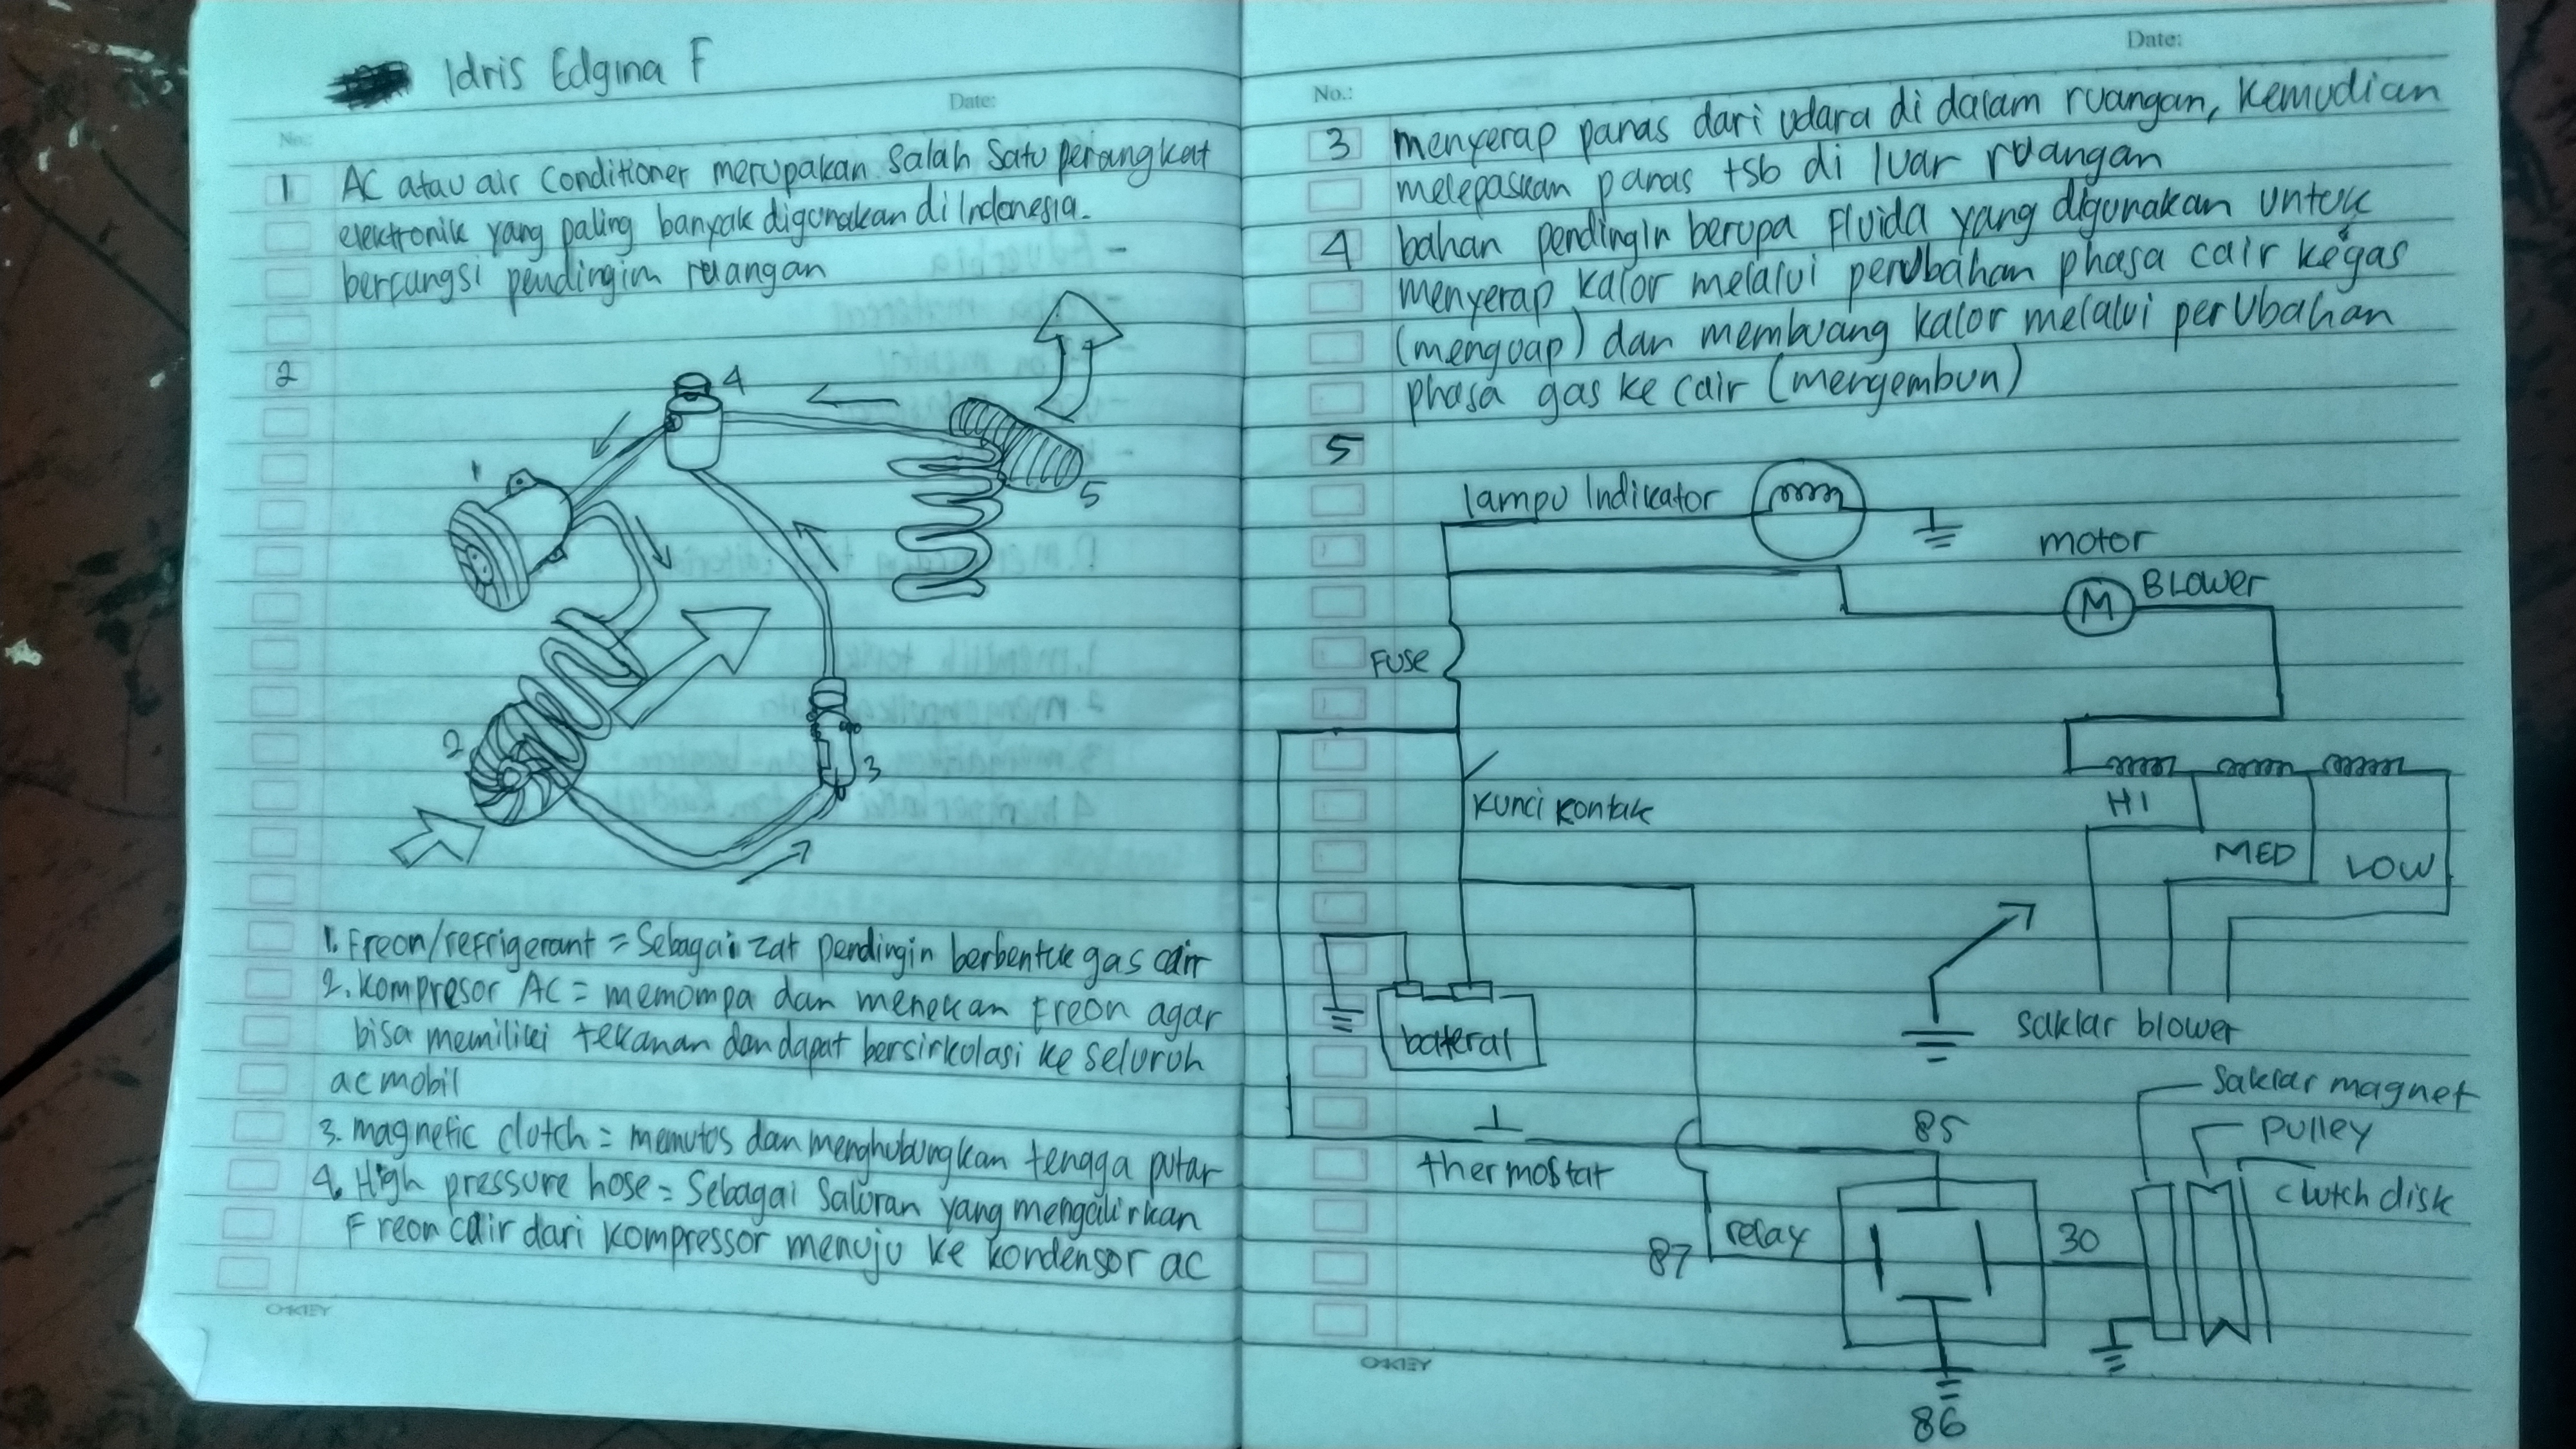 Idris Edgina F
Date:
No.:
1 AC atau air conditioner merupakan salah satu perangkat
elektronik yang paling banyak digunakan di Indonesia.
berfungsi pendingin ruangan
2
4
1
5
2
3
1. Freon/refrigerant = Sebagai zat pendingin berbentuk gas cair
2. Kompresor AC = memompa dan menekan Freon agar
bisa memiliki tekanan dan dapat bersirkulasi ke seluruh
ac mobil
3. magnetic clutch = memutus dan menghubungkan tenaga putar
4. High pressure hose = Sebagai Saluran yang mengalirkan
Freon cair dari kompressor menuju ke kondensor ac
OAKEY
Date:
No.:
3 menyerap panas dari udara di dalam ruangan, kemudian
melepaskan panas tsb di luar ruangan
4 bahan pendingin berupa Fluida yang digunakan untuk
menyerap kalor melalui perubahan phasa cair ke gas
(menguap) dan membuang kalor melalui perubahan
phasa gas ke cair (mengembun)
5
lampu Indikator
motor
M BLower
FUSE
HI
kunci kontak
MED LOW
baterai
saklar blower
saklar magnet
85 pulley
thermostat
clutch disk
relay 30
87
OAKEY
86